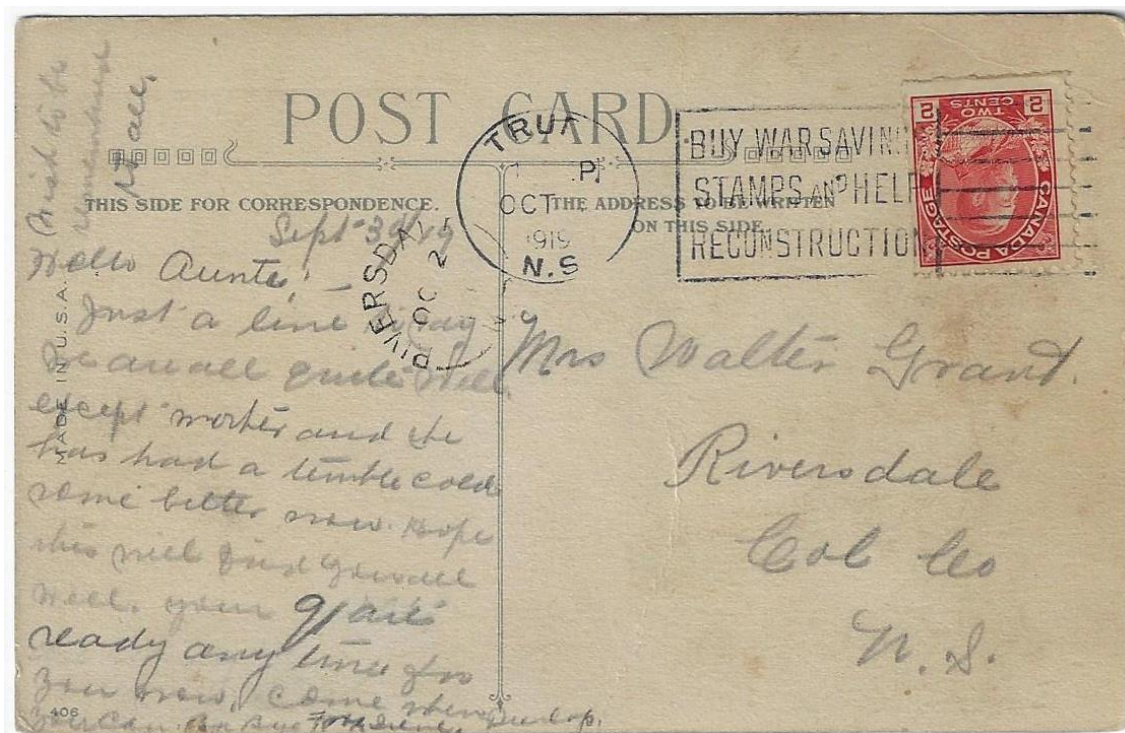 Wish to be
remembered
to all.
POST CARD
THIS SIDE FOR CORRESPONDENCE.
THE ADDRESS TO BE WRITTEN
ON THIS SIDE.
TRU
P
OCT
1919
N.S
BUY WAR SAVING
STAMPS AND HELP
RECONSTRUCTION
2 TWO CENTS 2
CANADA POSTAGE
RIVERSDA
OC 2
MADE IN U.S.A.
Sept 30/19
Hello Auntie,
Just a line to say
we are all quite well
except mother and she
has had a terrible cold
some better now. Hope
this will find you all
well. your
ready any time for
you now, come when
you can. Bye Bye Dunlop.
406
Mrs Walter Grant.
Riversdale
Col Co
N. S.